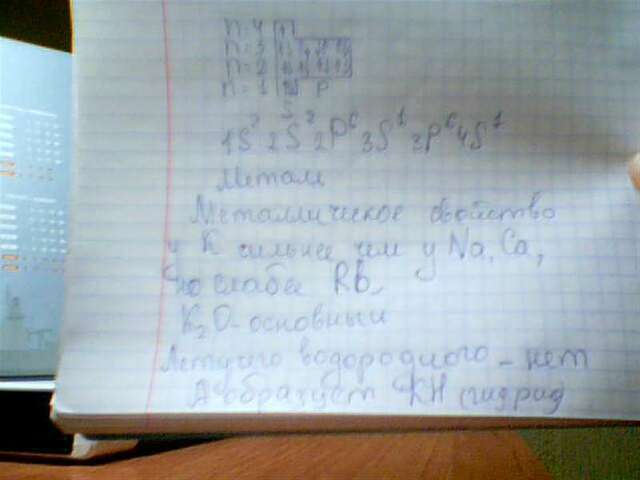 n=4
n=3
n=2
n=1 S P
1S² 2S² 2P⁶ 3S¹ 3P⁶ 4S¹
Метал
Металлическое свойство
у K сильнее чем у Na, Ca,
но слабее Rb,
K₂O-основный
Летучего водородного - нет
образует KH гидрид